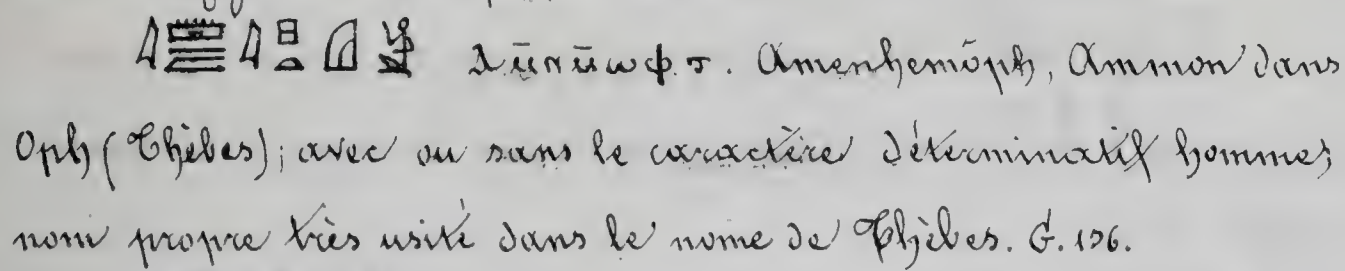 Ⲁⲙ̄ⲛⲙ̄ⲱⲫ.ⲧ. Amenhemôph, Ammon dans
Oph (Thèbes); avec ou sans le caractère déterminatif homme;
nom propre très usité dans le nome de Thèbes. G. 136.